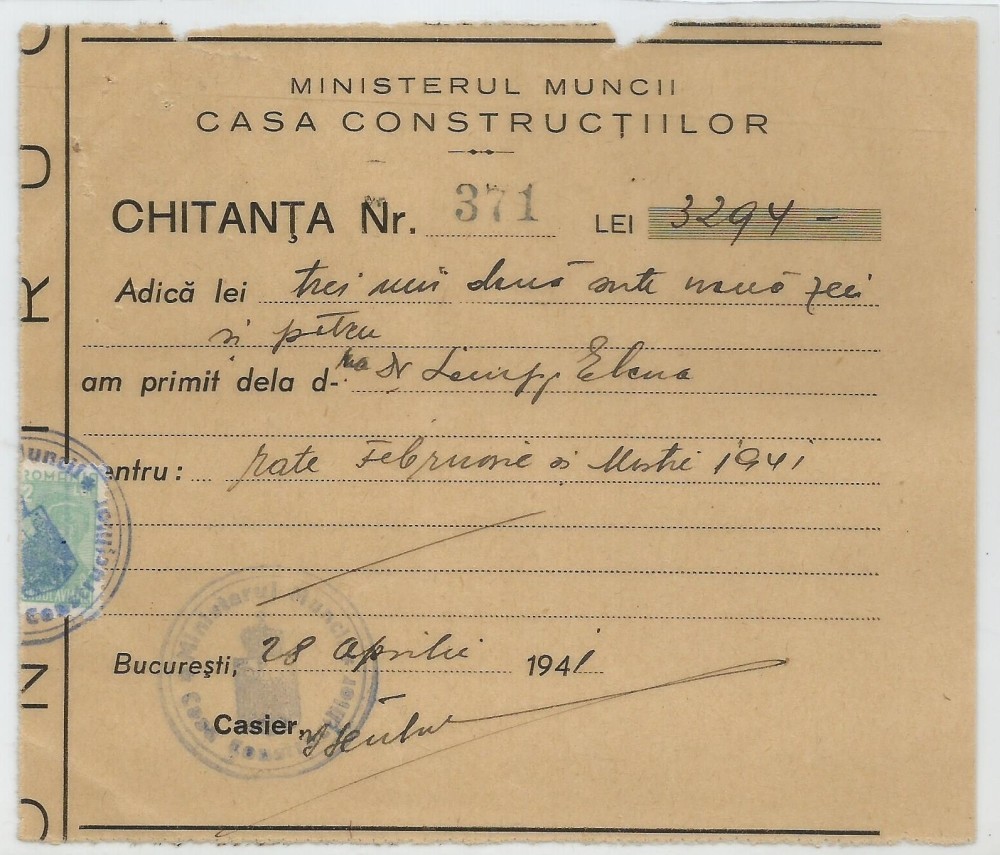 MINISTERUL MUNCII
CASA CONSTRUCȚIILOR
CHITANȚA Nr. 371 LEI 3294 -
Adică lei trei mii două sute nouă zeci
și patru
am primit dela d-na Dr Elena
entru: rate Februarie și Martie 1941
București, 28 Aprilie 1941
Casier,
Ministerul Muncii